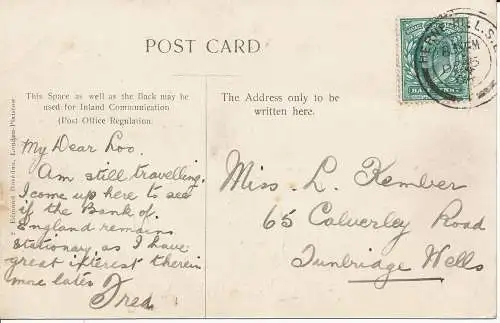 POST CARD
This Space as well as the Back may be
used for Inland Communication
(Post Office Regulation.
The Address only to be
written here.
HERNE HILL. S.E
HALFPENNY
London-
My Dear Loo.
Am still travelling.
I come up here to see
if the Bank of.
England remains
stationary as I have
great interest therein
more later
Fred
Miss L. Kember
65 Calverley Road
Tunbridge Wells